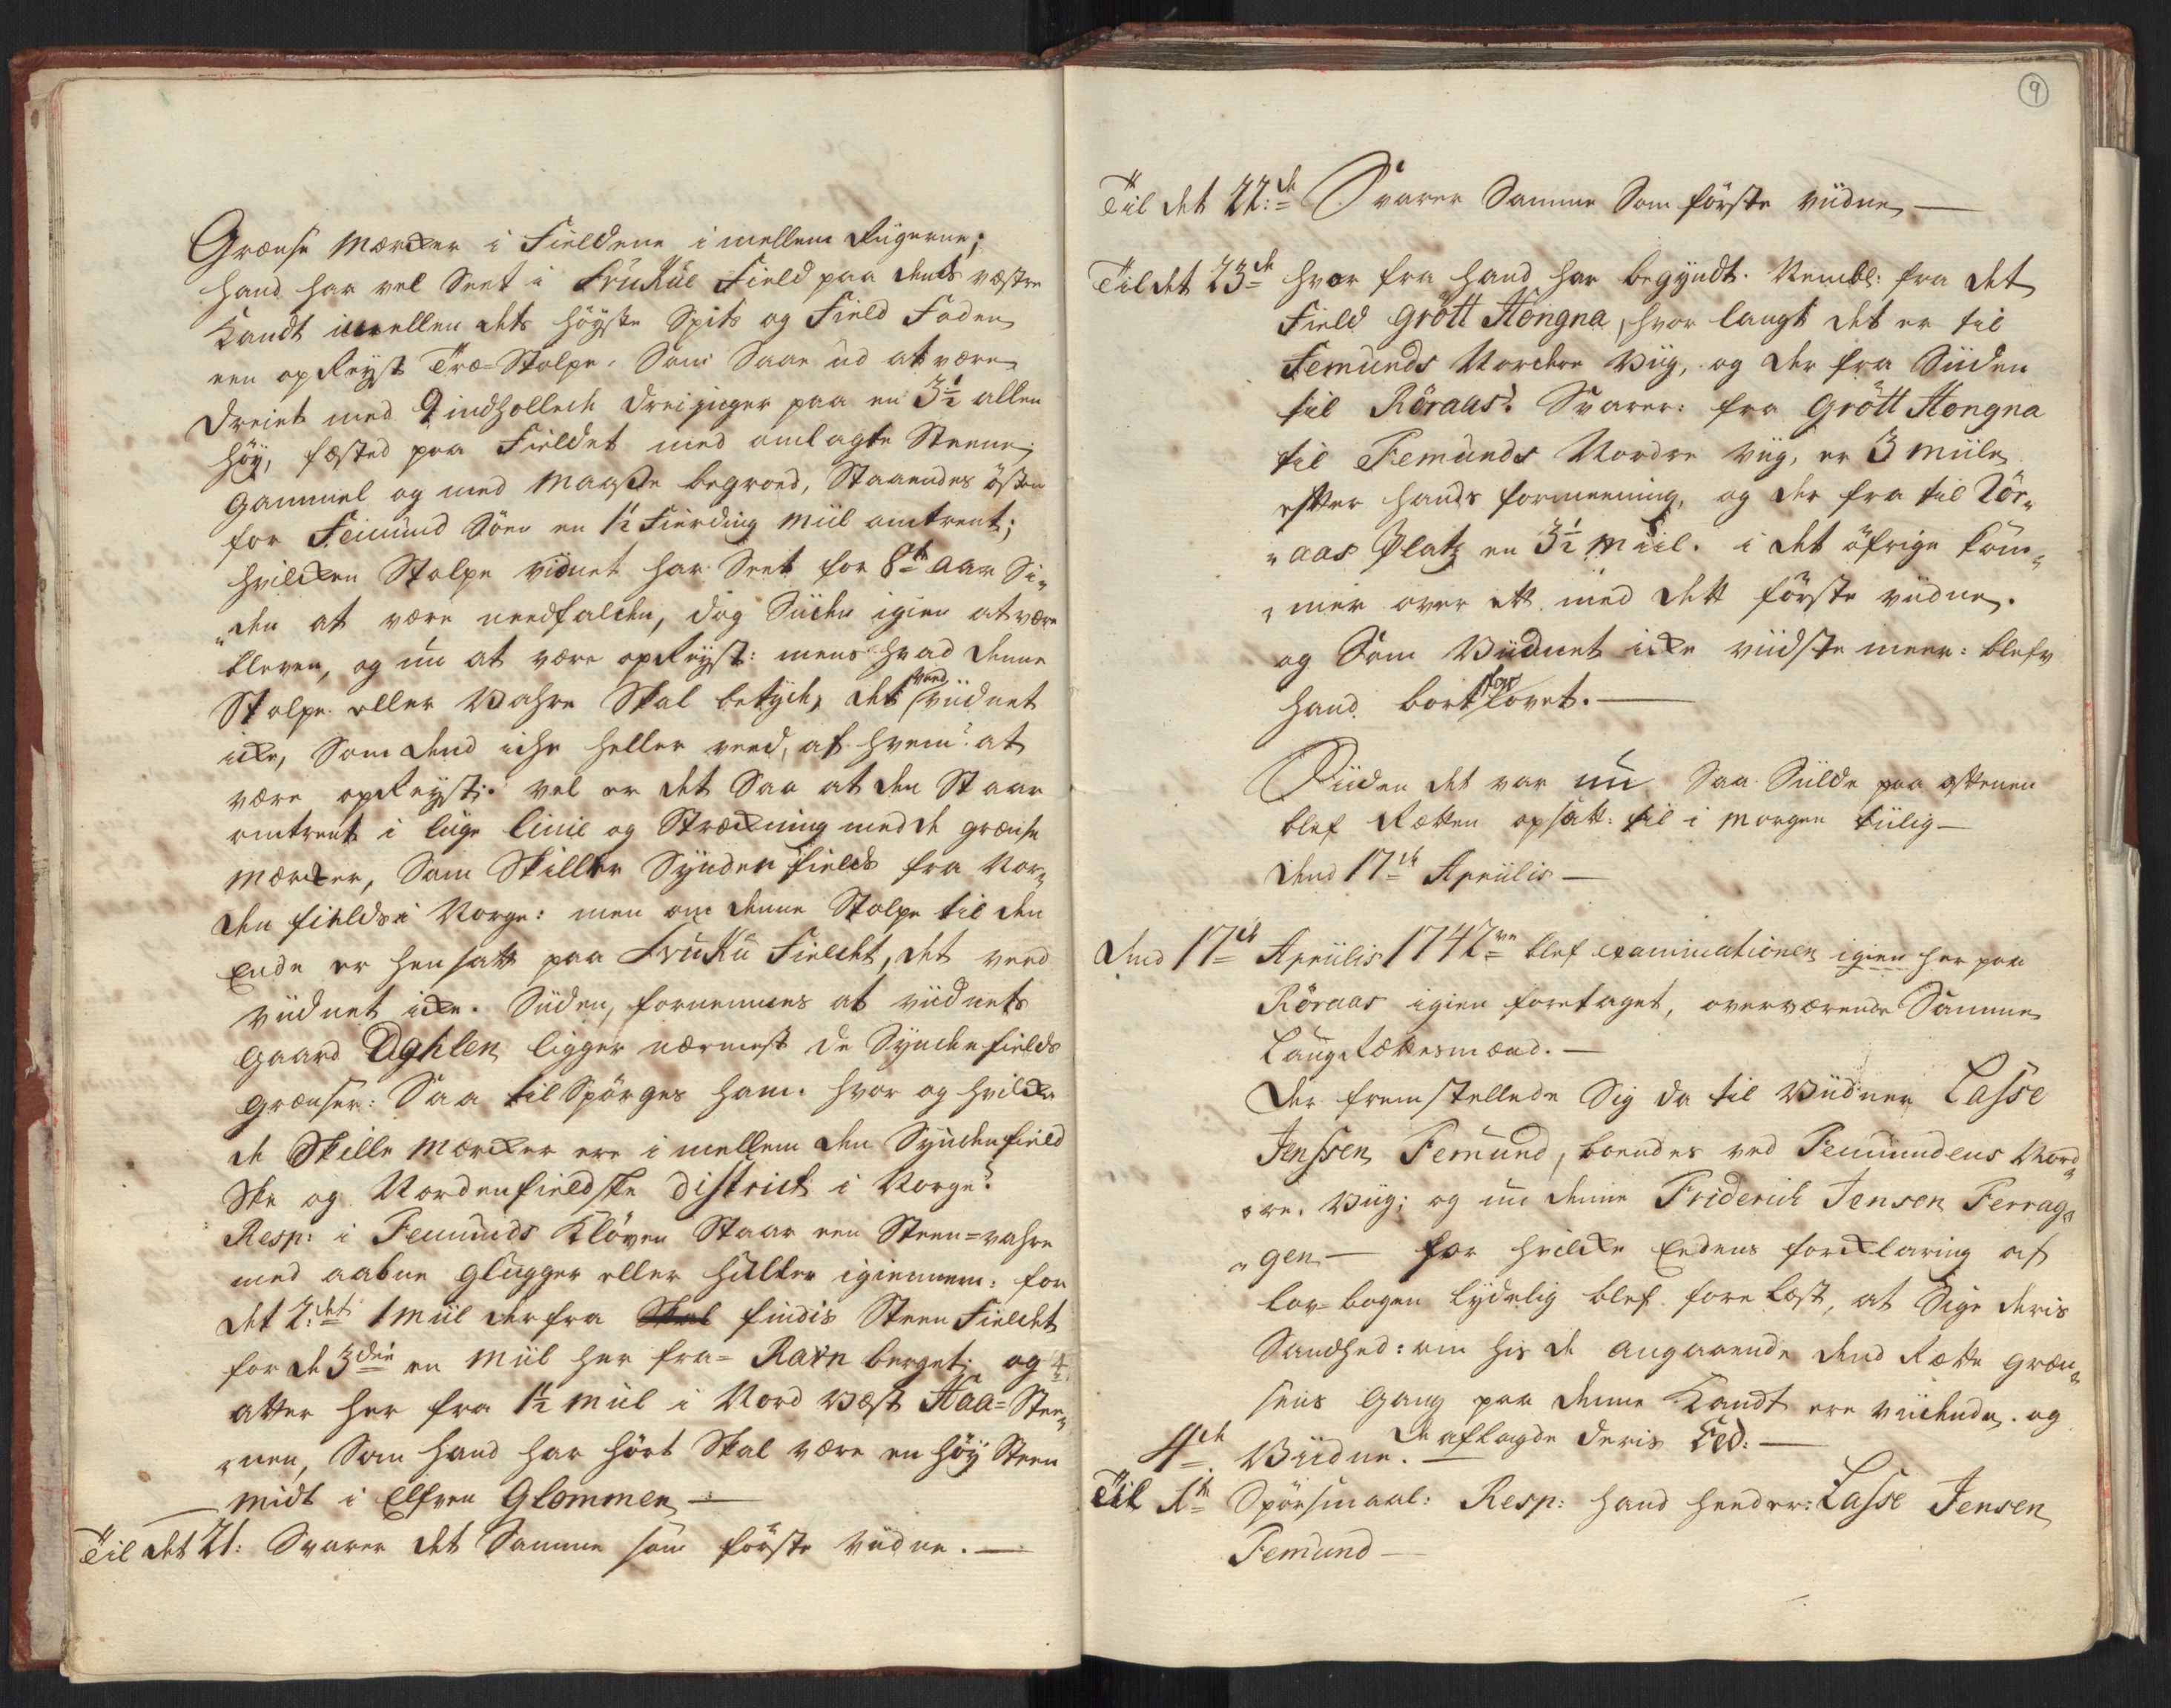 Grænse Mærker i Fieldene i mellem Rigerne;
hand har vel Seet i Fruküe Field paa dends væstre
Kandt imellem dets höyste Spits og Field Foden
een opReyst Træ-Stolpe, Som Saae üd at være
dreiet med 9 indhollede dreininger paa en 3½ allen
höy, fæsted paa Fieldet med omlagte Steene,
Gammel og med Maaße begroed, Staaendes östen
for Femund Söen en 1½ Fierding Miil omtrent;
hvilcken Stolpe vidnet har Seet for 8te Aar Si„
„den at være needfalden, dog Siiden igien at være
bleven, og nü at være opReyst: mens hvad denne
Stolpe eller Vahre Skal betyde, det veed viidnet
icke, Som dend icke heller veed, af hvem at
være opReyst: vel er det Saa at den Staar
omtrent i liige linie og Strækning med de grænse
Mærcker, Som Skiller Synden fields fra Nor„
den fields i Norge: men om denne Stolpe til den
Ende er hensatt paa Frükü Fieldet, det veed
viidnet icke. Siiden, fornemmes at viidnets
gaard Dghlen ligger nærmest de Syndenfields
grænser: Saa tilSpörges ham: hvor og hvilcke
de Skille Mærcker ere i mellem den Syndenfield
Ske og Nordenfieldske District i Norge?
Resp: i Femunds Klöven Staar een Steen-vahre
med aabne glügger eller Hüller igiennem: for
det 2det 1 Miil derfra Skal findis Steen Fieldet
for de 3die en Miil her fra- Ravn berget; og 4
atter her fra 1½ Miil i Nord Væst Haa-Stee„
„nen, Som hand har hört Skal være en höy Steen
midt i Elfven Glommen —
Til det 21: Svarer det Samme som förste vidne. —
9
Til det 22de Svarer Samme Som förste viidne, —
Til det 23de hvor fra hand har begyndt. Nembl: fra det
Field Grött Hongna, hvor langt det er til
Femunds Nordere Viig, og der fra Siiden
til Röraas? Svarer: fra Grött Hongna
til Femunds Nordre viig, er 3 Miile
efter hands formeening, og der fra til Rör„
„aas Platz en 3½ Miil. i det öfrige kom„
„mer over ett med dett förste viidne.
og Som Viidnet icke viidste meer: blefv
hand bort forlovet. —
Siiden det var nü Saa Siilde paa aftenen
blef Retten opsatt: til i Morgen tiilig —
dend 17de Apriilis —
Dend 17de Apriilis 1742ve blef examinationen igien her paa
Röraas igien foretaget, overværende Samme
LaugRettesmænd. —
Der fremstellede Sig da til Viidner Lasse
Jenssen Femünd, boendes ved Femundens Nord„
„re. Viig; og nu denne Friderich Jensen Ferrag„
„gen — for hvilcke Eedens forcklaring af
lov-bogen lydelig blef. fore læst, at Sige deris
Sandhed: om his de angaaende dend Rette græn„
sens gang paa denne Kandt ere viidende. og
de aflagde deris Eed: —
4de Viidne.
Til 1te Spörsmaal: Resp: hand heeder: Lasse Jensen
Femund —